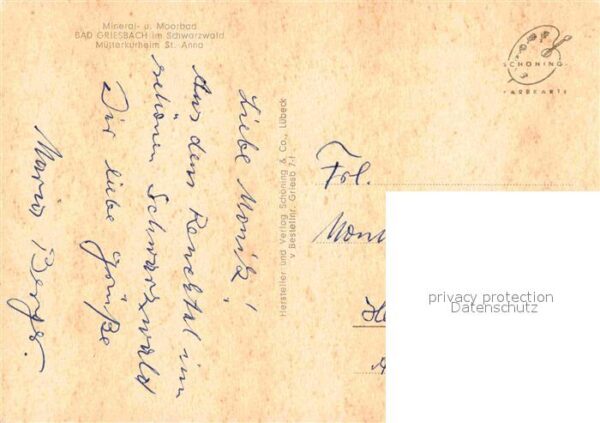 Mineral- u. Moorbad
BAD GRIESBACH im Schwarzwald
Mütterkurheim St. Anna
SCHÖNING
Liebe Monik!
Aus dem Renchtal im
schönen Schwarzwald
Dir liebe Grüße
Maria Berger.
Hersteller und Verlag Schöning & Co., Lübeck
Bestellnr. Griesb 7
Frl.
privacy protection
Datenschutz